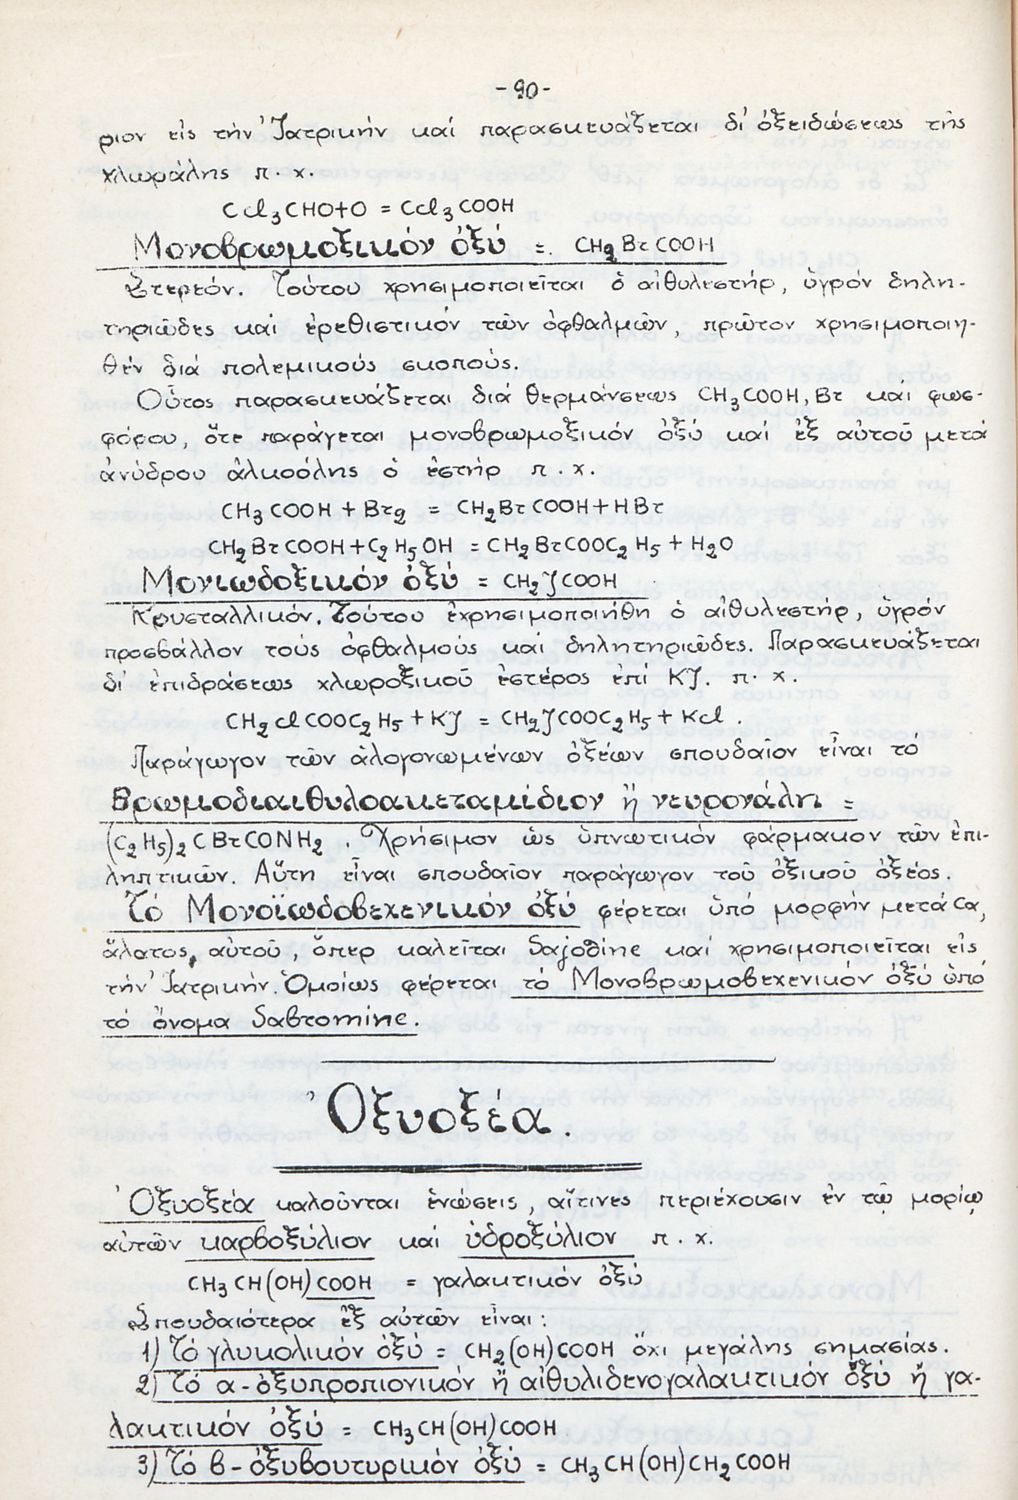 -90-
ριον εἰς τήν Ἰατρικήν καί παρασκευάζεται δι' ὀξειδώσεως τῆς
χλωράλης π.χ.
CCl₃CHO+O = CCl₃COOH
Μονοβρωμοξικόν ὀξύ = CH₂BrCOOH
Στερεόν. Τούτου χρησιμοποιεῖται ὁ αἰθυλεστήρ, ὑγρόν δηλη-
τηριῶδες καί ἐρεθιστικόν τῶν ὀφθαλμῶν, πρῶτον χρησιμοποιη-
θέν διά πολεμικούς σκοπούς.
Οὗτος παρασκευάζεται διά θερμάνσεως CH₃COOH, Br καί φωσ-
φόρου, ὅτε παράγεται μονοβρωμοξικόν ὀξύ καί ἐξ αὐτοῦ μετά
ἀνύδρου ἀλκοόλης ὁ ἐστήρ π.χ.
CH₃COOH + Br₂ = CH₂BrCOOH + HBr
CH₂BrCOOH + C₂H₅OH = CH₂BrCOOC₂H₅ + H₂O
Μονιωδοξικόν ὀξύ = CH₂JCOOH
Κρυσταλλικόν. Τούτου ἐχρησιμοποιήθη ὁ αἰθυλεστήρ, ὑγρόν
προσβάλλον τούς ὀφθαλμούς καί δηλητηριῶδες. Παρασκευάζεται
δι' ἐπιδράσεως χλωροξικοῦ ἐστέρος ἐπί KJ. π.χ.
CH₂ClCOOC₂H₅ + KJ = CH₂JCOOC₂H₅ + KCl.
Παράγωγον τῶν ἀλογονωμένων ὀξέων σπουδαῖον εἶναι τό
Βρωμοδιαιθυλοακεταμίδιον ἤ νευρονάλη =
(C₂H₅)₂CBrCONH₂. Χρήσιμον ὡς ὑπνωτικόν φάρμακον τῶν ἐπι-
ληπτικῶν. Αὕτη εἶναι σπουδαῖον παράγωγον τοῦ ὀξικοῦ ὀξέος.
Τό Μονοϊωδοβεχενικόν ὀξύ φέρεται ὑπό μορφήν μετά Ca,
ἅλατος, αὐτοῦ, ὅπερ καλεῖται Sajodine καί χρησιμοποιεῖται εἰς
τήν Ἰατρικήν. Ὁμοίως φέρεται τό Μονοβρωμοβεχενικόν ὀξύ ὑπό
τό ὄνομα Sabromine.
Ὀξυοξέα.
Ὀξυοξέα καλοῦνται ἑνώσεις, αἵτινες περιέχουσιν ἐν τῷ μορίῳ
αὐτῶν καρβοξύλιον καί ὑδροξύλιον π.χ.
CH₃CH(OH)COOH = γαλακτικόν ὀξύ
Σπουδαιότερα ἐξ αὐτῶν εἶναι:
1) Τό γλυκολικόν ὀξύ = CH₂(OH)COOH ὄχι μεγάλης σημασίας.
2) Τό α-ὀξυπροπιονικόν ἤ αἰθυλιδενογαλακτικόν ὀξύ ἤ γα-
λακτικόν ὀξύ = CH₃CH(OH)COOH
3) Τό β-ὀξυβουτυρικόν ὀξύ = CH₃CH(OH)CH₂COOH